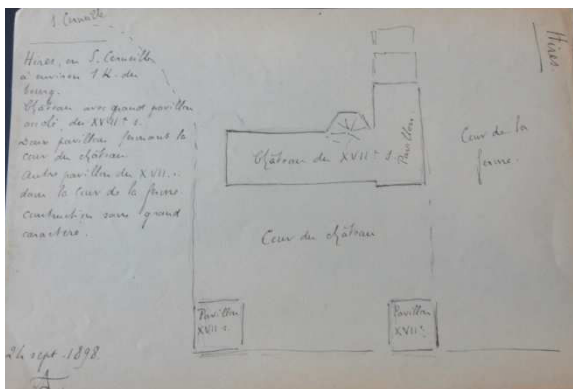 S. Cernille
Hires.
Hires, en S. Cernillon
à environ 1 K. du
bourg.
Château avec grand pavillon
du XVIIIe s.
Deux pavillon fermant la
cour du château
Autre pavillon du XVII s.
dans la cour de la ferme
construction sans grand
caractère.
Château du XVIIe s.
Pavillon
Cour de la
ferme.
Cour du château
Pavillon
XVII s.
Pavillon
XVII s.
24 sept. 1898.